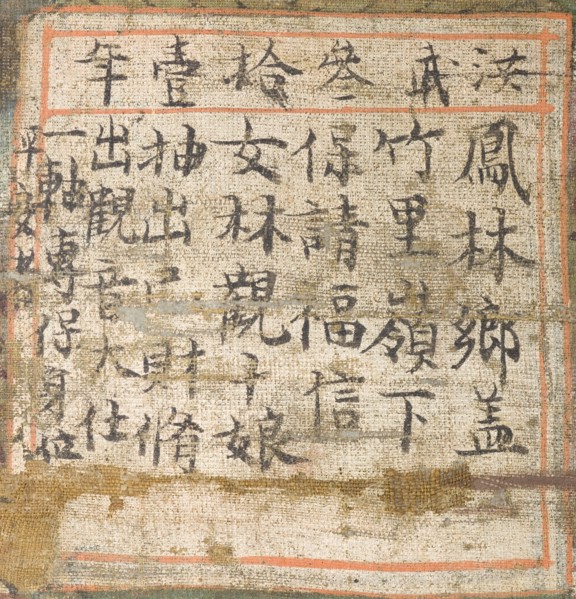 洪武叁拾壹年
鳳林鄉盖
竹里嶺下
保請福信
女林觀十娘
抽出己財脩
出觀音大仕
一軸專保身位
平安吉